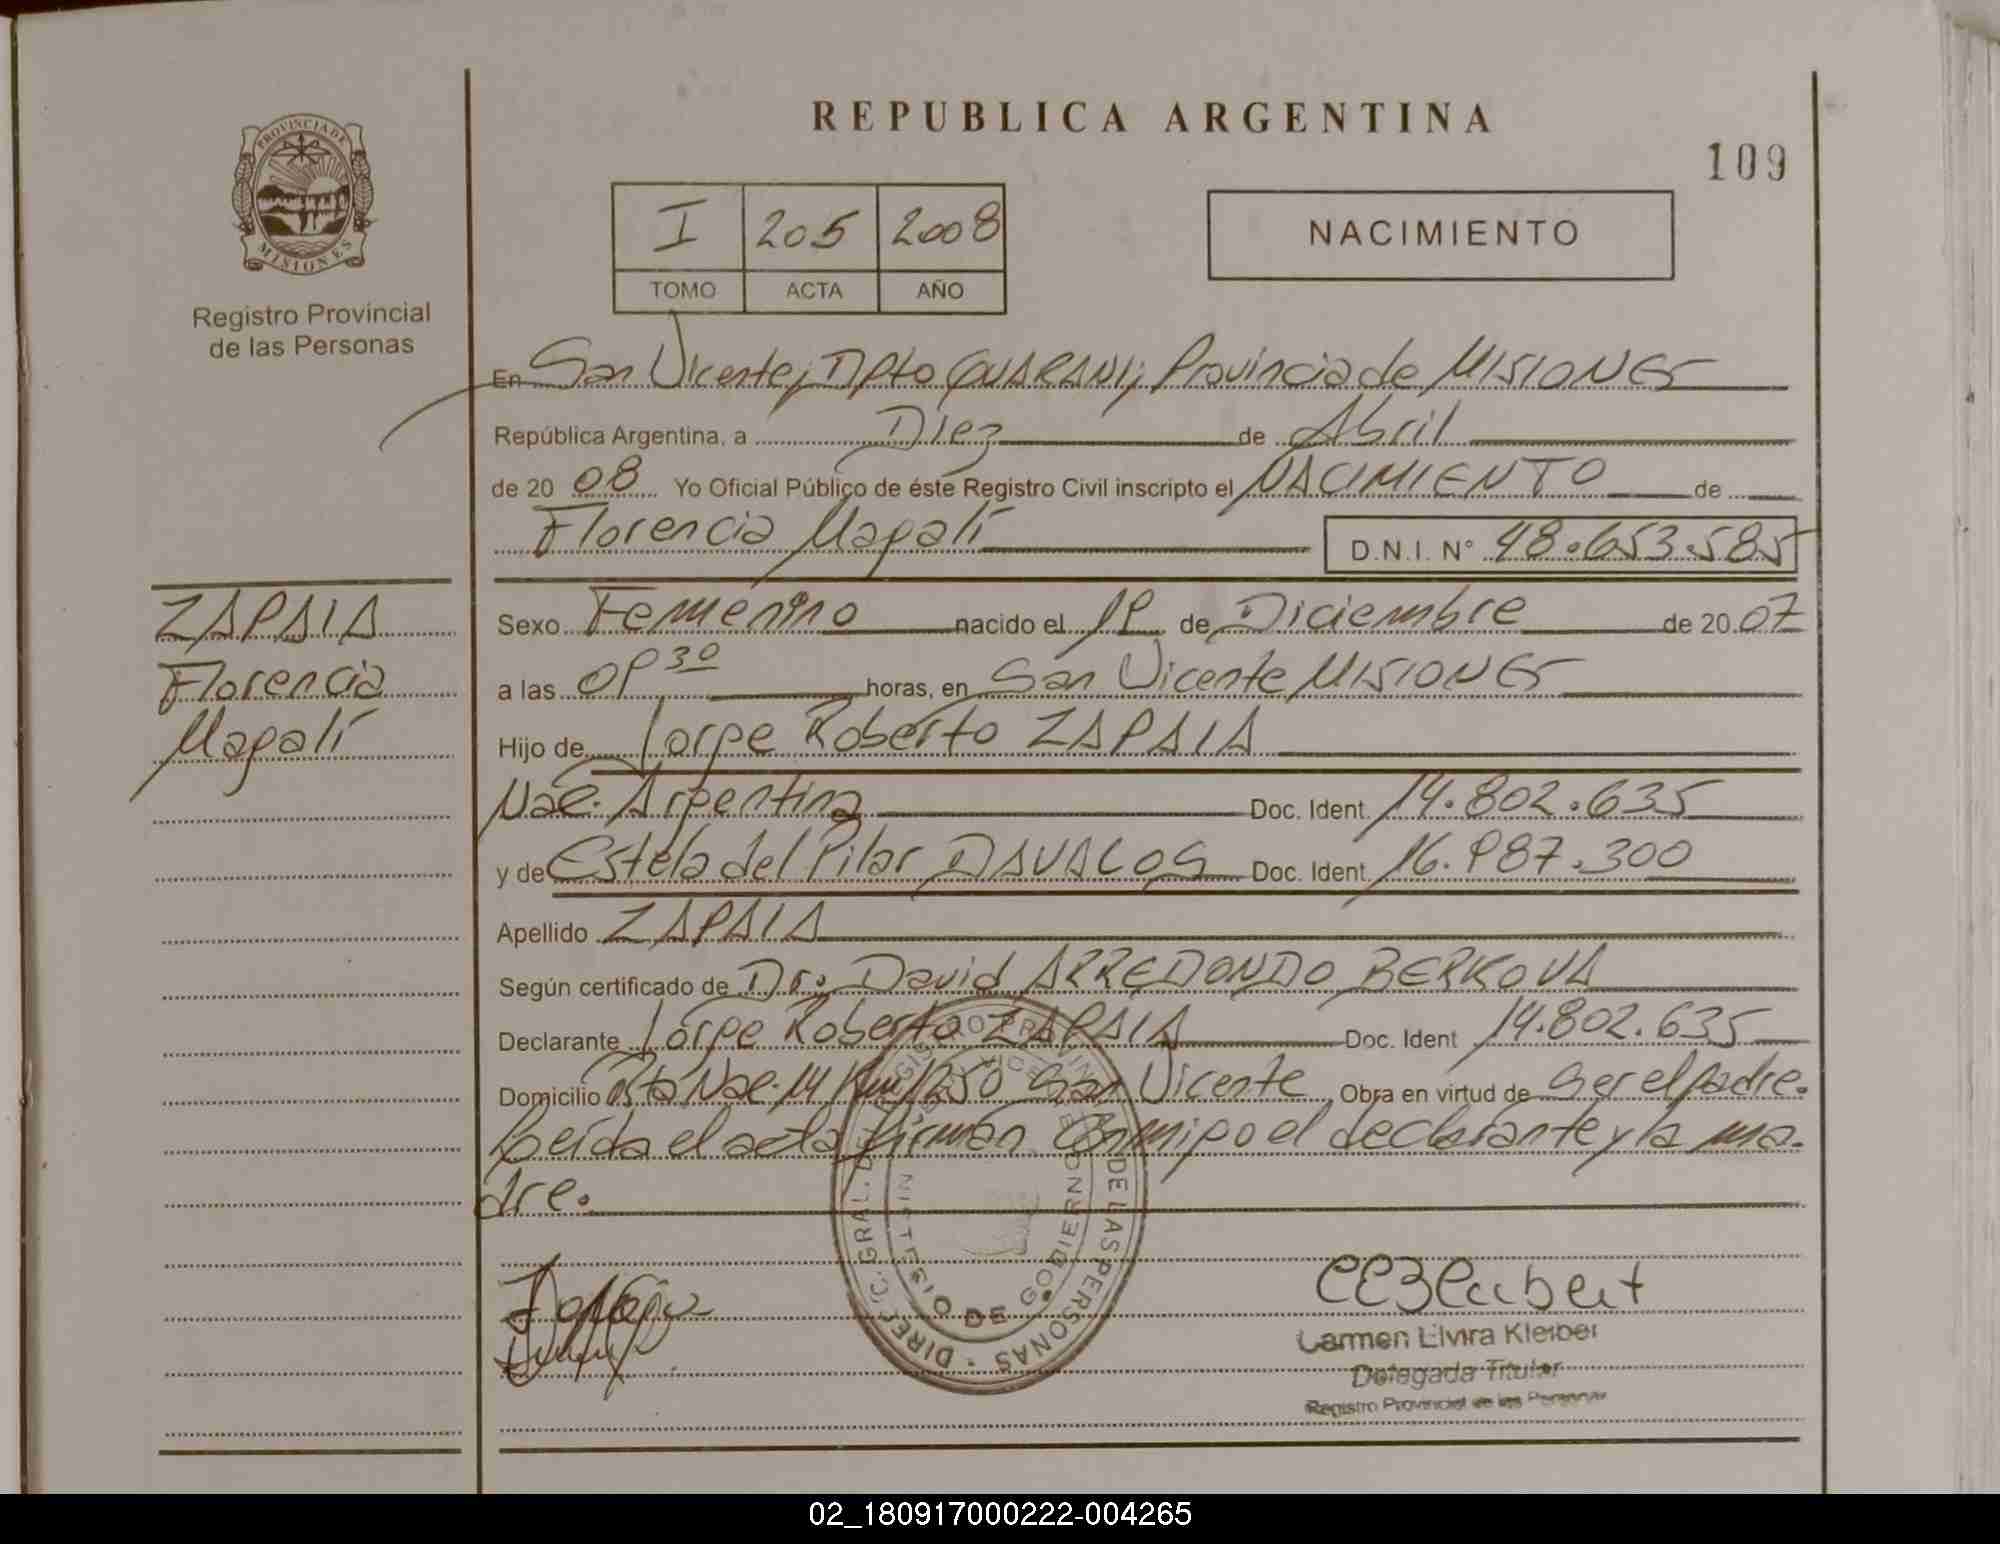 REPUBLICA ARGENTINA
109
PROVINCIA DE
MISIONES
Registro Provincial
de las Personas
I 205 2008
TOMO ACTA AÑO
NACIMIENTO
En San Vicente, Dpto GUARANI, Provincia de MISIONES
República Argentina, a Diez de Abril
de 20 08 Yo Oficial Público de éste Registro Civil inscripto el NACIMIENTO de
Florencia Magalí D.N.I. N° 48.653.585
ZAPAIA
Florencia
Magalí
Sexo Femenino nacido el 19 de Diciembre de 20 07
a las 09 30 horas, en San Vicente MISIONES
Hijo de Jorge Roberto ZAPAIA
Nac. Argentina Doc. Ident. 14.802.635
y de Estela del Pilar DAVALOS Doc. Ident. 16.987.300
Apellido ZAPAIA
Según certificado de Dr. David ARREDONDO BERKOVA
Declarante Jorge Roberto ZAPAIA Doc. Ident 14.802.635
Domicilio Rta Nac. 14 Km 1250 San Vicente Obra en virtud de Ser el padre.
Leída el acta firman conmigo el declarante y la ma-
dre.
DE LAS PERSONAS
GOBIERNO DE
Carmen Elvira Kleiber
Delegada Titular
Registro Provincial de las Personas
02_180917000222-004265